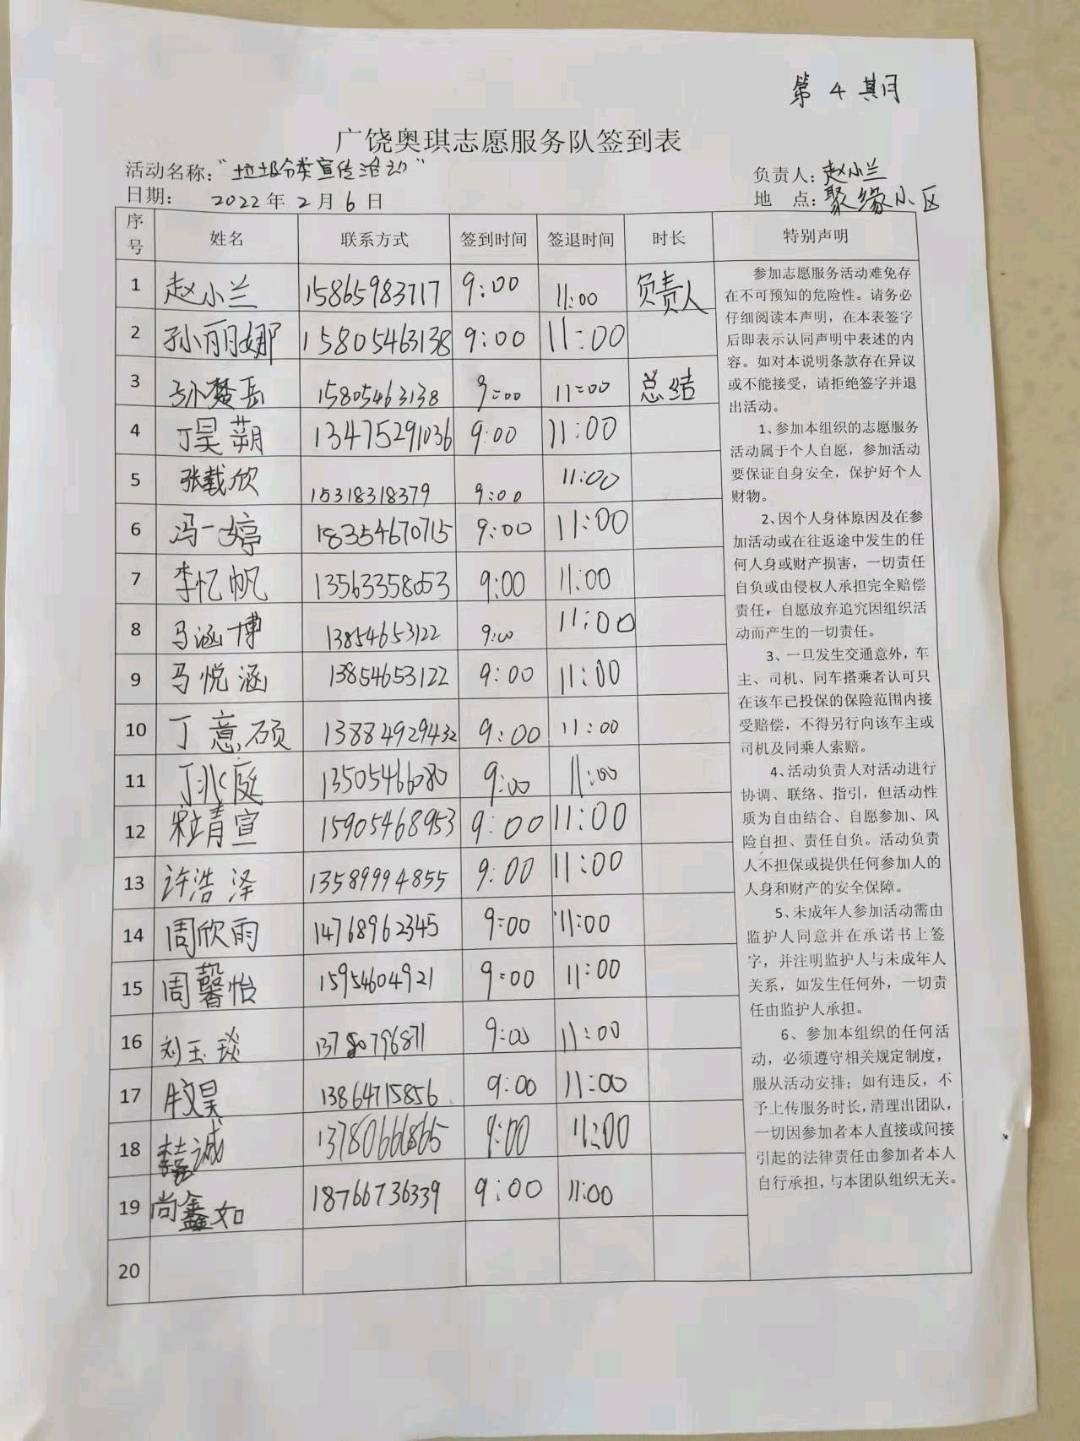 第 4 期
广饶奥琪志愿服务队签到表
活动名称："垃圾分类宣传活动"
负责人：赵小兰
日期： 2022年2月6日
地 点：聚缘小区
序号 姓名 联系方式 签到时间 签退时间 时长 特别声明
1 赵小兰 15865983717 9:00 11:00 负责人
2 孙丽娜 15805463138 9:00 11:00
3 孙楚岳 15805463138 9:00 11:00 总结
4 丁昊朔 13475291036 9:00 11:00
5 张载欣 15318318379 9:00 11:00
6 冯一婷 18354670715 9:00 11:00
7 李忆帆 13563358053 9:00 11:00
8 马涵博 13854653122 9:00 11:00
9 马悦涵 13854653122 9:00 11:00
10 丁意硕 13884929432 9:00 11:00
11 丁兆庭 13505466080 9:00 11:00
12 青宣 15905468953 9:00 11:00
13 许浩泽 13589994855 9:00 11:00
14 周欣雨 14768962345 9:00 11:00
15 周馨怡 15954604921 9:00 11:00
16 刘玉琰 13780796871 9:00 11:00
17 昊 13864715856 9:00 11:00
18 诚 13780666865 9:00 11:00
19 尚鑫如 18766736339 9:00 11:00
20
参加志愿服务活动难免存
在不可预知的危险性。请务必
仔细阅读本声明，在本表签字
后即表示认同声明中表述的内
容。如对本说明条款存在异议
或不能接受，请拒绝签字并退
出活动。
1、参加本组织的志愿服务
活动属于个人自愿，参加活动
要保证自身安全，保护好个人
财物。
2、因个人身体原因及在参
加活动或在往返途中发生的任
何人身或财产损害，一切责任
自负或由侵权人承担完全赔偿
责任，自愿放弃追究因组织活
动而产生的一切责任。
3、一旦发生交通意外，车
主、司机、同车搭乘者认可只
在该车已投保的保险范围内接
受赔偿，不得另行向该车主或
司机及同乘人索赔。
4、活动负责人对活动进行
协调、联络、指引，但活动性
质为自由结合、自愿参加、风
险自担、责任自负。活动负责
人不担保或提供任何参加人的
人身和财产的安全保障。
5、未成年人参加活动需由
监护人同意并在承诺书上签
字，并注明监护人与未成年人
关系，如发生任何外，一切责
任由监护人承担。
6、参加本组织的任何活
动，必须遵守相关规定制度，
服从活动安排；如有违反，不
予上传服务时长，清理出团队，
一切因参加者本人直接或间接
引起的法律责任由参加者本人
自行承担，与本团队组织无关。